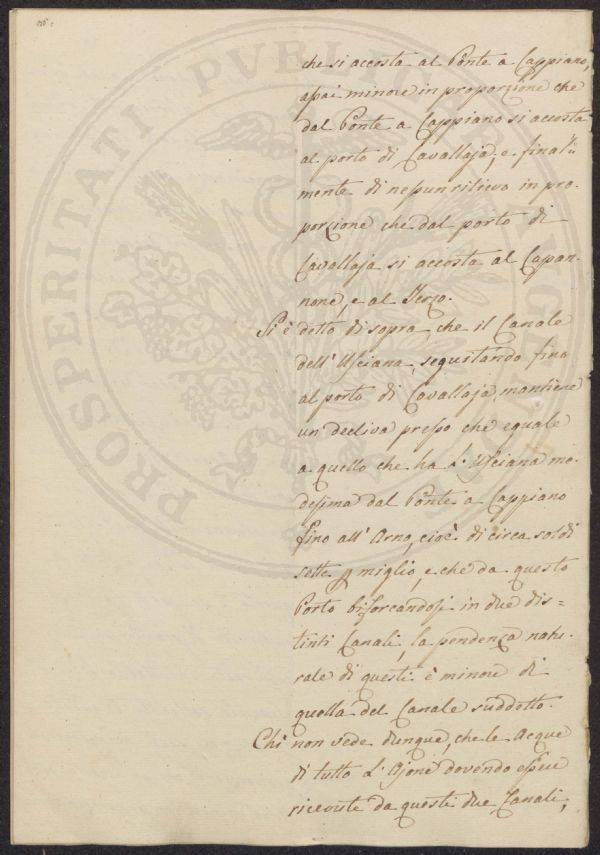 che si accosta al Ponte a Cappiano,
assai minore in proporzione che
dal Ponte a Cappiano si accosta
al porto di Cavallaja, e final=
mente di nessun rilievo in pro-
porzione che dal porto di
Cavallaja si accosta al Capan-
none, e al Terzo.
Si è detto di sopra che il Canale
dell'Usciana, seguitando fino
al porto di Cavallaja, mantiene
un decliva presso che eguale
a quello che ha l'Usciana me-
desima dal Ponte a Cappiano
fino all'Arno, cioè di circa soldi
sette p miglio, e che da questo
Porto biforcandosi in due dis=
tinti Canali, la pendenza natu-
rale di questi è minore di
quella del Canale suddetto.
Chi non vede dunque, che le Acque
di tutto l'Ajone dovendo essere
ricevute da questi due Canali,
PROSPERITATI PUBLICAE